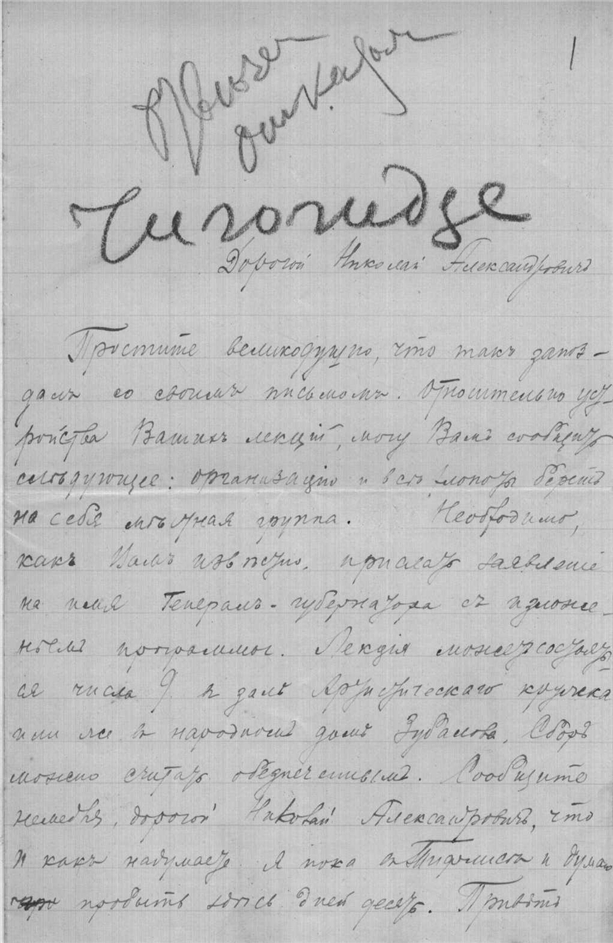 1
Чигогидзе
Дорогой Николай Александровичъ
Простите великодушно, что такъ запоз-
далъ со своимъ письмомъ. Относительно уст-
ройства Вашихъ лекцій, могу Вамъ сообщить
слѣдующее: организацію и всѣ хлопоты беретъ
на себя мѣстная группа. Необходимо,
какъ Вамъ извѣстно, прислать заявленіе
на имя Генералъ-губернатора съ изложе-
ніемъ программы. Лекція можетъ состоять-
ся числа 9 в залѣ Артистическаго кружка
или же в народномъ домѣ Зубалова. Сборъ
можно считать обезпеченнымъ. Сообщите
немедля, дорогой Николай Александровичъ, что
и какъ надумаете. Я пока в Тифлисѣ и думаю
пробыть здѣсь дней десять. Привѣтъ